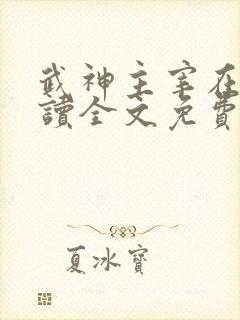 武神主宰在
讀全文免費
夏冰寶